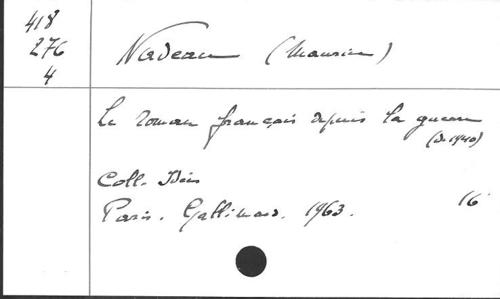 418
276
4
Nadeau (Maurice)
Le roman français depuis la guerre
(de 1940)
Coll. Idées
Paris. Gallimard. 1963. 16